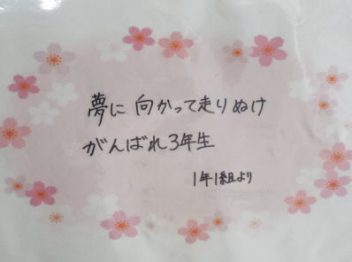 夢に向かって走りぬけ
がんばれ3年生
1年1組より